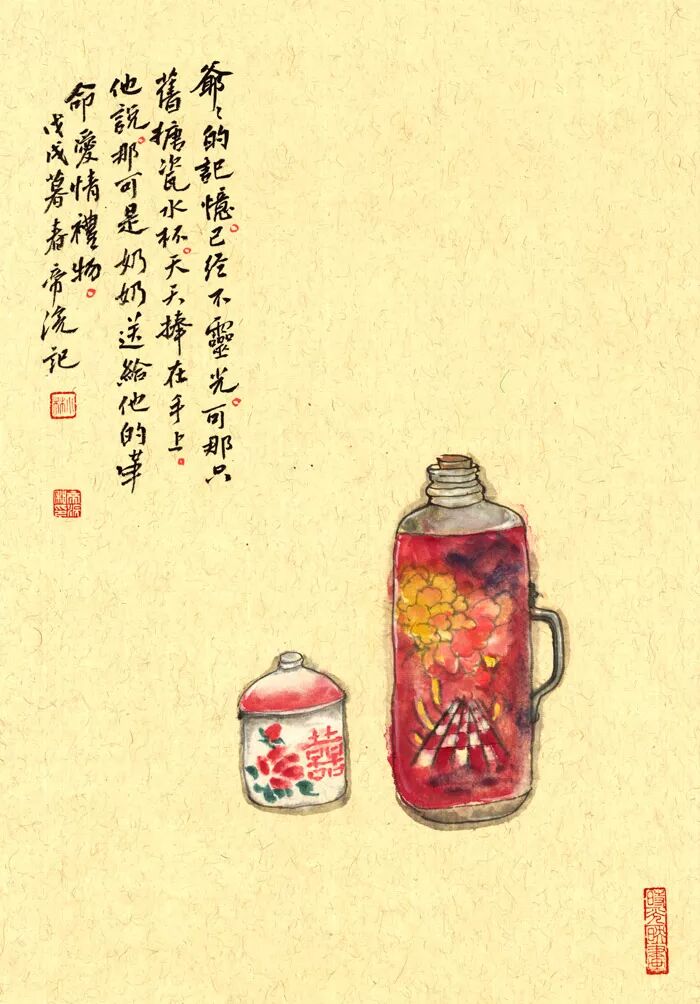 爺〻的記憶。已经不靈光。可那只
舊搪瓷水杯。天天捧在手上。
他説。那可是奶奶送給他的革
命愛情禮物。
戊戌暮春帝浣記
囍